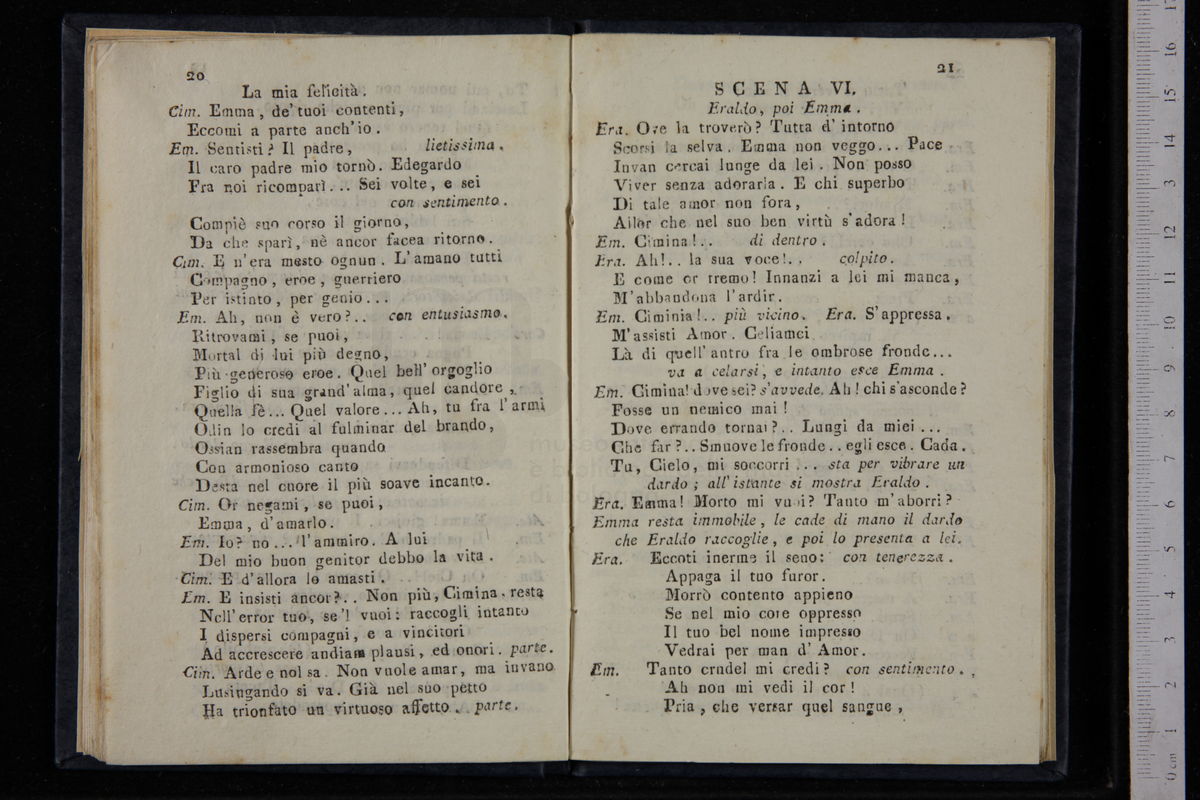 20
La mia felicità.
Cim. Emma, de' tuoi contenti,
Eccomi a parte anch'io.
Em. Sentisti? Il padre, lietissima.
Il caro padre mio tornò. Edegardo
Fra noi ricomparì... Sei volte, e sei
con sentimento.
Compiè suo corso il giorno,
Da che sparì, nè ancor facea ritorno.
Cim. E n'era mesto ognun. L'amano tutti
Compagno, eroe, guerriero
Per istinto, per genio...
Em. Ah, non è vero?.. con entusiasmo.
Ritrovami, se puoi,
Mortal di lui più degno,
Più generoso eroe. Quel bell' orgoglio
Figlio di sua grand' alma, quel candore,
Quella fè... Quel valore... Ah, tu fra l'armi
Odin lo credi al fulminar del brando,
Ossian rassembra quando
Con armonioso canto
Desta nel cuore il più soave incanto.
Cim. Or negami, se puoi,
Emma, d'amarlo.
Em. Io? no... l'ammiro. A lui
Del mio buon genitor debbo la vita.
Cim. E d'allora lo amasti.
Em. E insisti ancor?.. Non più, Cimina. resta
Nell' error tuo, se'l vuoi: raccogli intanto
I dispersi compagni, e a vincitori
Ad accrescere andiam plausi, ed onori. parte.
Cim. Arde e nol sa. Non vuole amar, ma invano
Lusingando si va. Già nel suo petto
Ha trionfato un virtuoso affetto. parte.
21
SCENA VI.
Eraldo, poi Emma.
Era. Ove la troverò? Tutta d' intorno
Scorsi la selva. Emma non veggo... Pace
Invan cercai lunge da lei. Non posso
Viver senza adorarla. E chi superbo
Di tale amor non fora,
Allor che nel suo ben virtù s'adora!
Em. Cimina!.. di dentro.
Era. Ah!.. la sua voce!.. colpito.
E come or tremo! Innanzi a lei mi manca,
M'abbandona l'ardir.
Em. Ciminia!.. più vicino. Era. S'appressa.
M'assisti Amor. Celiamci
Là di quell' antro fra le ombrose fronde...
va a celarsi, e intanto esce Emma.
Em. Cimina! dove sei? s'avvede. Ah! chi s'asconde?
Fosse un nemico mai!
Dove errando tornai?.. Lungi da miei...
Che far?.. Smuove le fronde.. egli esce. Cada.
Tu, Cielo, mi soccorri... sta per vibrare un
dardo; all' istante si mostra Eraldo.
Era. Emma! Morto mi vuoi? Tanto m'aborri?
Emma resta immobile, le cade di mano il dardo
che Eraldo raccoglie, e poi lo presenta a lei.
Era. Eccoti inerme il seno: con tenerezza.
Appaga il tuo furor.
Morrò contento appieno
Se nel mio core oppresso
Il tuo bel nome impresso
Vedrai per man d' Amor.
Em. Tanto crudel mi credi? con sentimento.
Ah non mi vedi il cor!
Pria, che versar quel sangue,